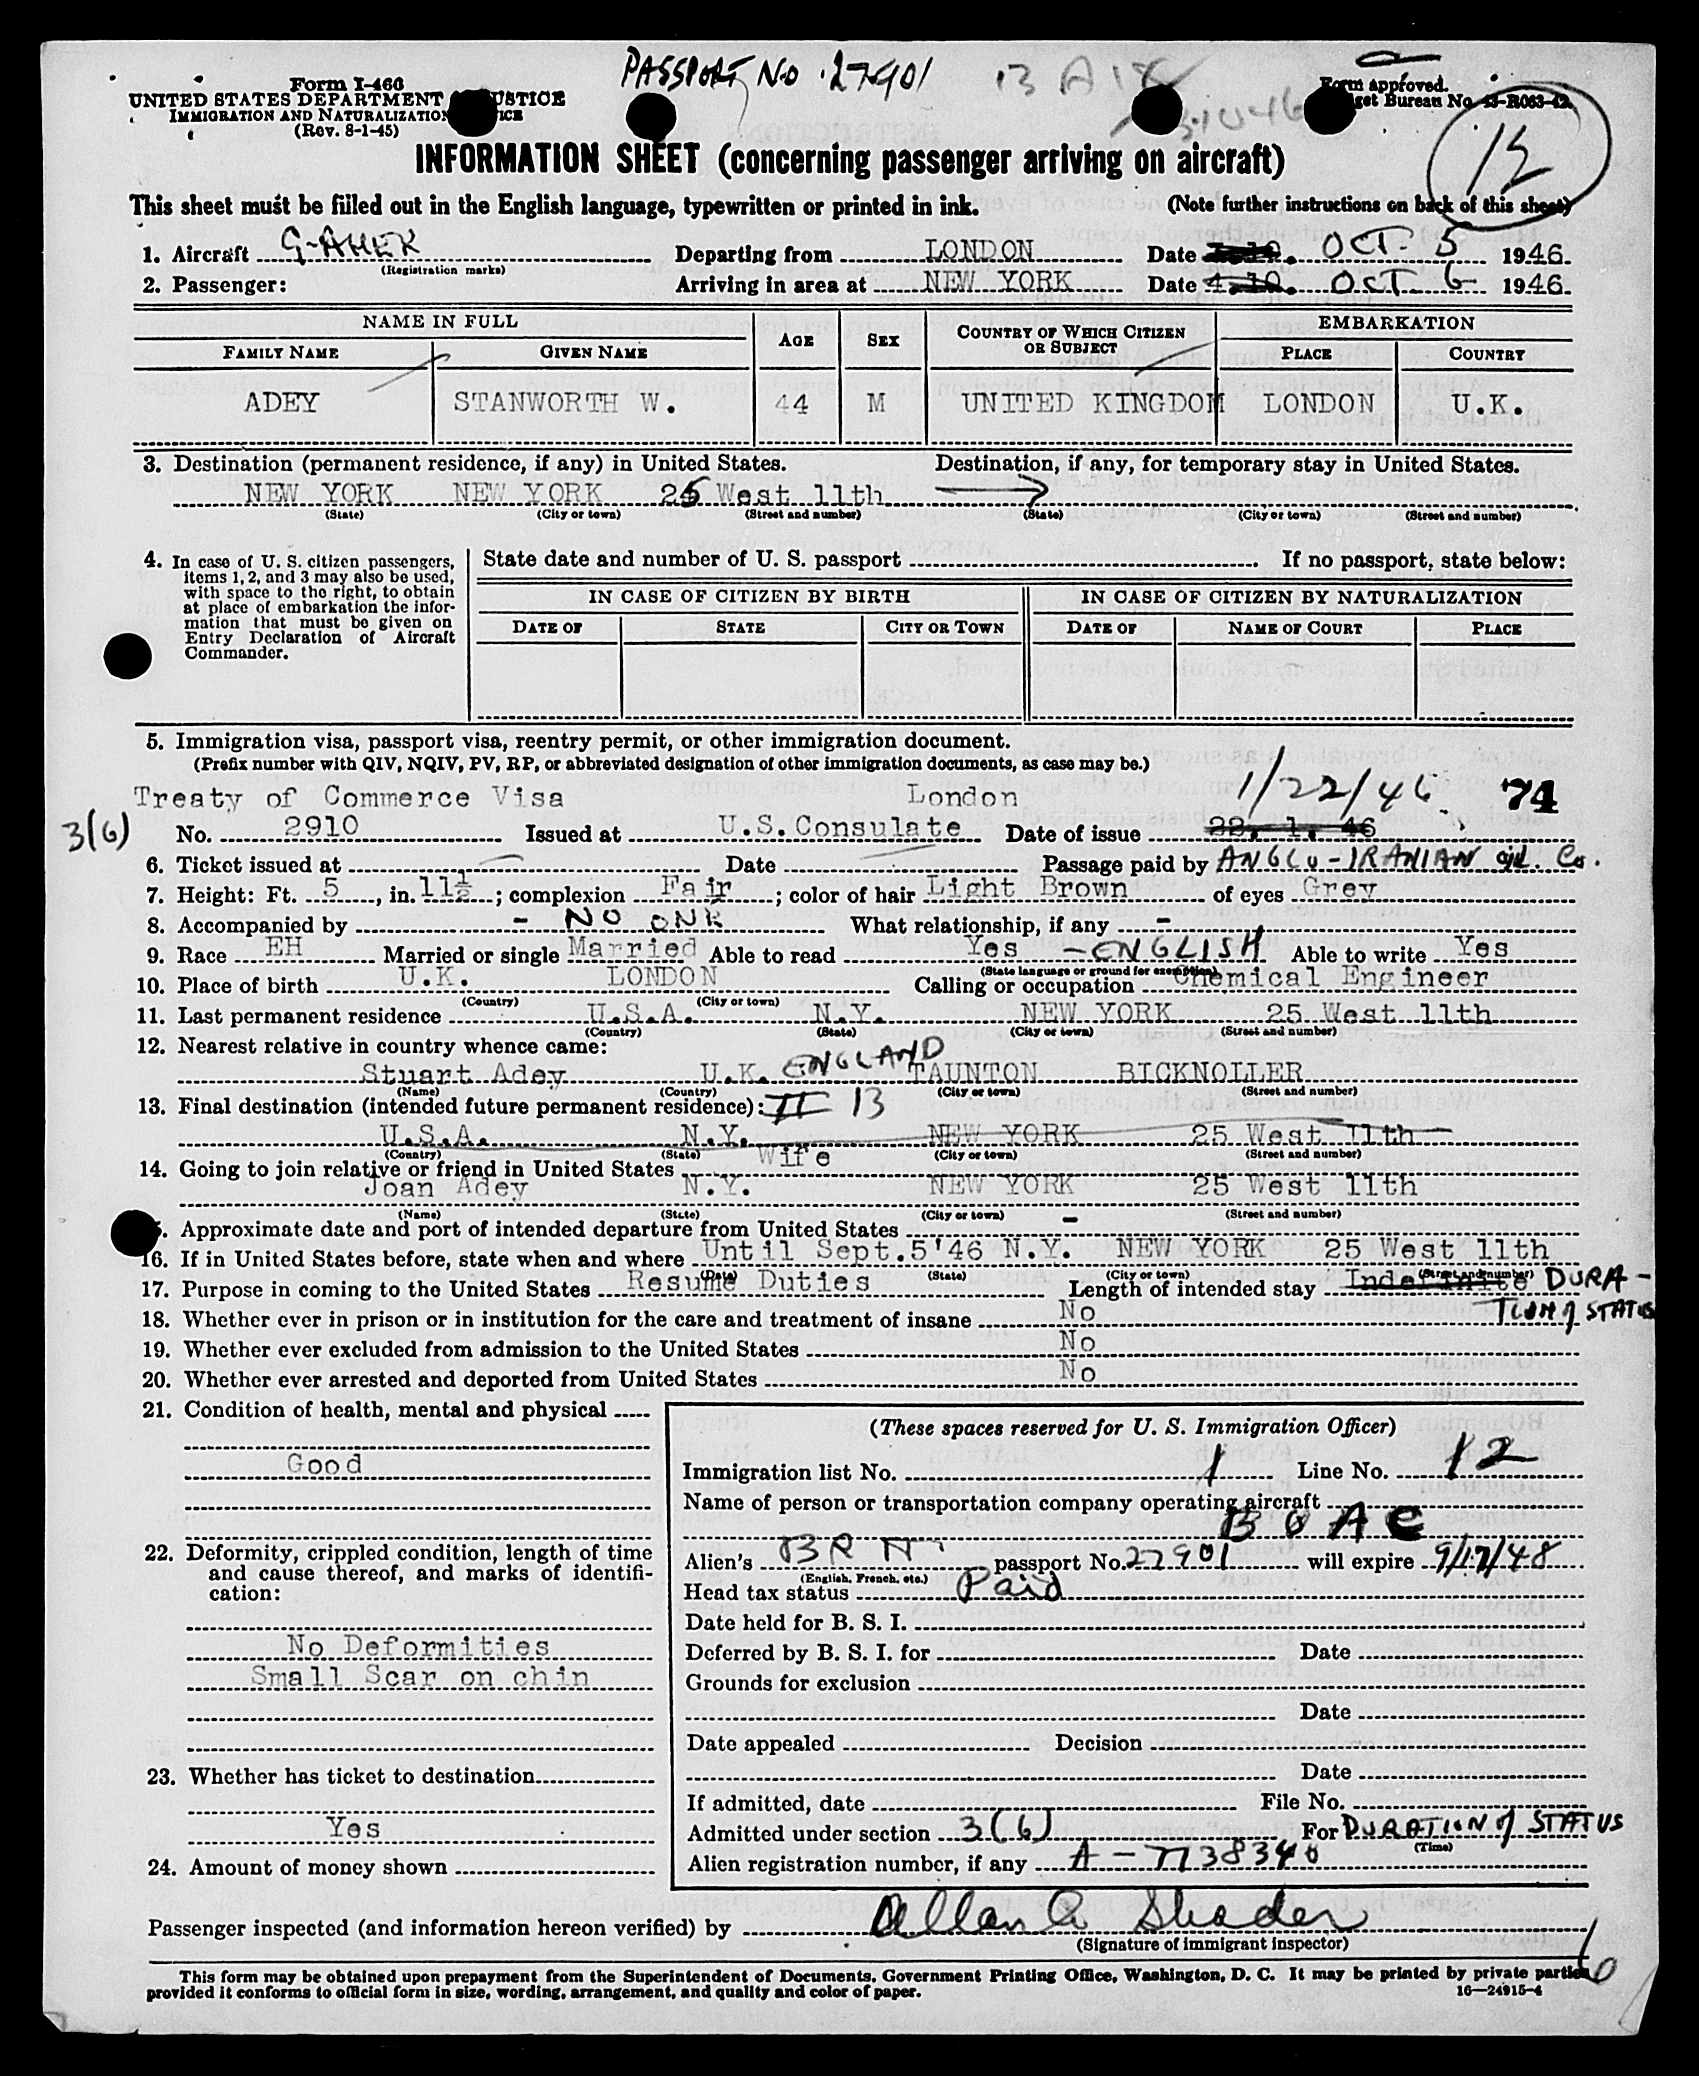 PASSPORT NO 27901
Form I-466
UNITED STATES DEPARTMENT JUSTICE
IMMIGRATION AND NATURALIZATION
(Rev. 8-1-45)
Form approved.
Budget Bureau No. 43-R063-42.
INFORMATION SHEET (concerning passenger arriving on aircraft)
This sheet must be filled out in the English language, typewritten or printed in ink. (Note further instructions on back of this sheet)
1. Aircraft G-AHEK Departing from LONDON Date OCT. 5 1946.
(Registration marks)
2. Passenger: Arriving in area at NEW YORK Date 4.10. OCT. 6 1946.
NAME IN FULL
FAMILY NAME GIVEN NAME AGE SEX COUNTRY OF WHICH CITIZEN OR SUBJECT EMBARKATION PLACE COUNTRY
ADEY STANWORTH W. 44 M UNITED KINGDOM LONDON U.K.
3. Destination (permanent residence, if any) in United States. Destination, if any, for temporary stay in United States.
NEW YORK NEW YORK 25 West 11th
(State) (City or town) (Street and number) (State) (City or town) (Street and number)
4. In case of U. S. citizen passengers, items 1, 2, and 3 may also be used, with space to the right, to obtain at place of embarkation the information that must be given on Entry Declaration of Aircraft Commander.
State date and number of U. S. passport If no passport, state below:
IN CASE OF CITIZEN BY BIRTH IN CASE OF CITIZEN BY NATURALIZATION
DATE OF STATE CITY OR TOWN DATE OF NAME OF COURT PLACE
5. Immigration visa, passport visa, reentry permit, or other immigration document.
(Prefix number with QIV, NQIV, PV, RP, or abbreviated designation of other immigration documents, as case may be.)
Treaty of Commerce Visa London 1/22/46 74
3(6) No. 2910 Issued at U.S.Consulate Date of issue 22. 1. 46
6. Ticket issued at Date Passage paid by ANGLO-IRANIAN OIL. Co.
7. Height: Ft. 5, in. 11½; complexion Fair; color of hair Light Brown of eyes Grey
8. Accompanied by - NO ONE What relationship, if any -
9. Race EH Married or single Married Able to read Yes - ENGLISH Able to write Yes
(State language or ground for exemption)
10. Place of birth U.K. LONDON Calling or occupation Chemical Engineer
(Country) (City or town)
11. Last permanent residence U.S.A. N.Y. NEW YORK 25 West 11th
(Country) (State) (City or town) (Street and number)
12. Nearest relative in country whence came:
Stuart Adey U.K. ENGLAND TAUNTON BICKNOLLER
(Name) (Country) (City or town) (Street and number)
13. Final destination (intended future permanent residence): II 13
U.S.A. N.Y. NEW YORK 25 West 11th
(Country) (State) (City or town) (Street and number)
14. Going to join relative or friend in United States Wife
Joan Adey N.Y. NEW YORK 25 West 11th
(Name) (State) (City or town) (Street and number)
Approximate date and port of intended departure from United States -
16. If in United States before, state when and where Until Sept.5'46 N.Y. NEW YORK 25 West 11th
(Date) (State) (City or town) (Street and number)
17. Purpose in coming to the United States Resume Duties Length of intended stay Indefinite DURATION of STATUS
18. Whether ever in prison or in institution for the care and treatment of insane No
19. Whether ever excluded from admission to the United States No
20. Whether ever arrested and deported from United States No
21. Condition of health, mental and physical
Good
22. Deformity, crippled condition, length of time and cause thereof, and marks of identification:
No Deformities
Small Scar on chin
23. Whether has ticket to destination
Yes
24. Amount of money shown
(These spaces reserved for U. S. Immigration Officer)
Immigration list No. 1 Line No. 12
Name of person or transportation company operating aircraft
BOAC
Alien's BRIT passport No. 27901 will expire 9/17/48
(English, French, etc.)
Head tax status Paid
Date held for B. S. I.
Deferred by B. S. I. for Date
Grounds for exclusion
Date
Date appealed Decision
Date
If admitted, date File No.
Admitted under section 3(6) For DURATION of STATUS
(Time)
Alien registration number, if any A-7738340
Passenger inspected (and information hereon verified) by Allan A Shader
(Signature of immigrant inspector)
This form may be obtained upon prepayment from the Superintendent of Documents, Government Printing Office, Washington, D. C. It may be printed by private parties
provided it conforms to official form in size, wording, arrangement, and quality and color of paper. 16—24915-4